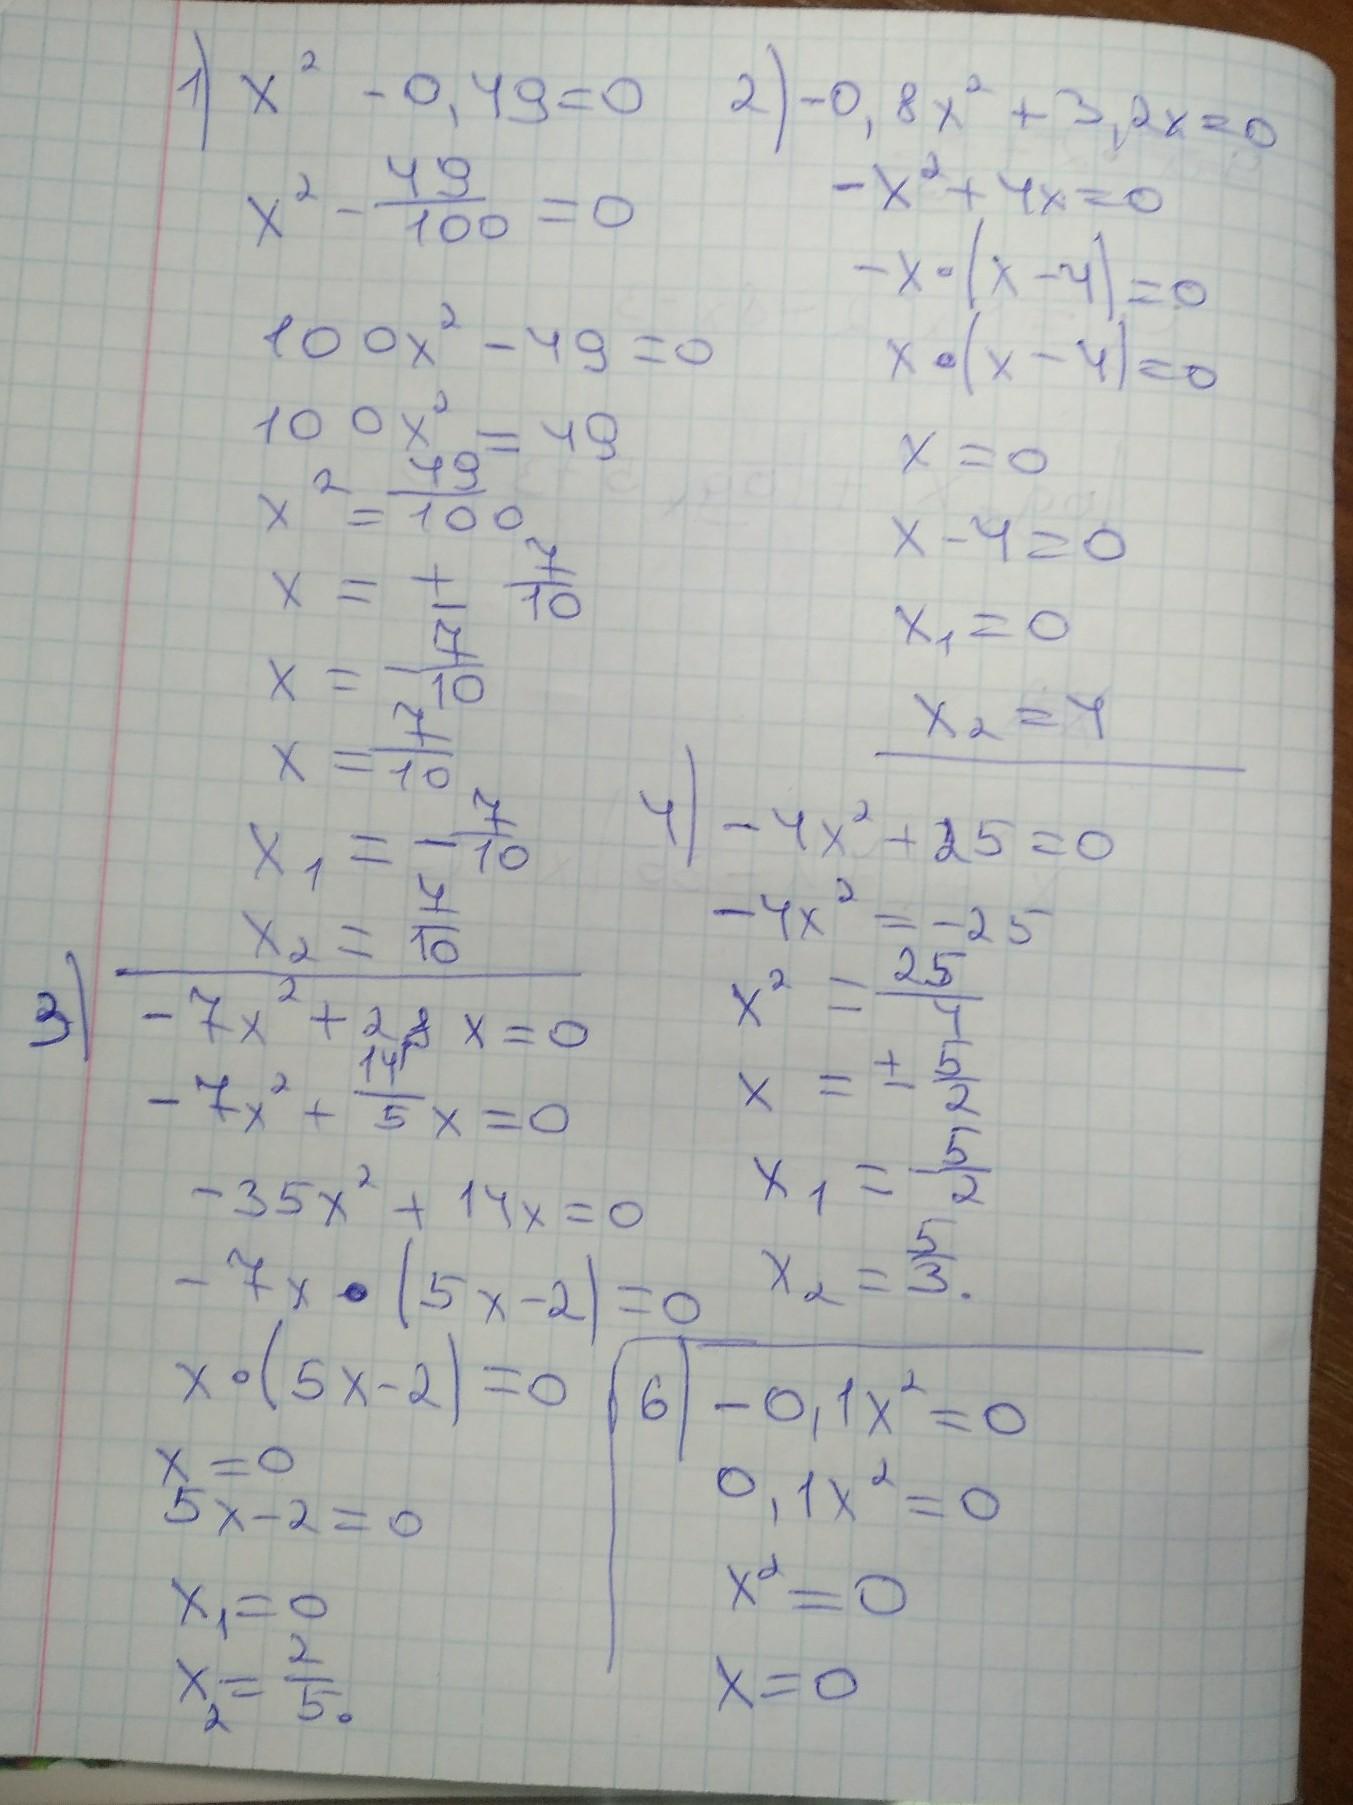 1) x² - 0,49 = 0
x² - 49/100 = 0
100x² - 49 = 0
100x² = 49
x² = 49/100
x = ± 7/10
x = - 7/10
x = 7/10
x₁ = - 7/10
x₂ = 7/10
2) -0,8x² + 3,2x = 0
-x² + 4x = 0
-x · (x - 4) = 0
x · (x - 4) = 0
x = 0
x - 4 = 0
x₁ = 0
x₂ = 4
3) -7x² + 2,8x = 0
-7x² + 14/5 x = 0
-35x² + 14x = 0
-7x · (5x - 2) = 0
x · (5x - 2) = 0
x = 0
5x - 2 = 0
x₁ = 0
x₂ = 2/5.
4) -4x² + 25 = 0
-4x² = -25
x² = 25/4
x = ± 5/2
x₁ = - 5/2
x₂ = 5/3.
6) -0,1x² = 0
0,1x² = 0
x² = 0
x = 0